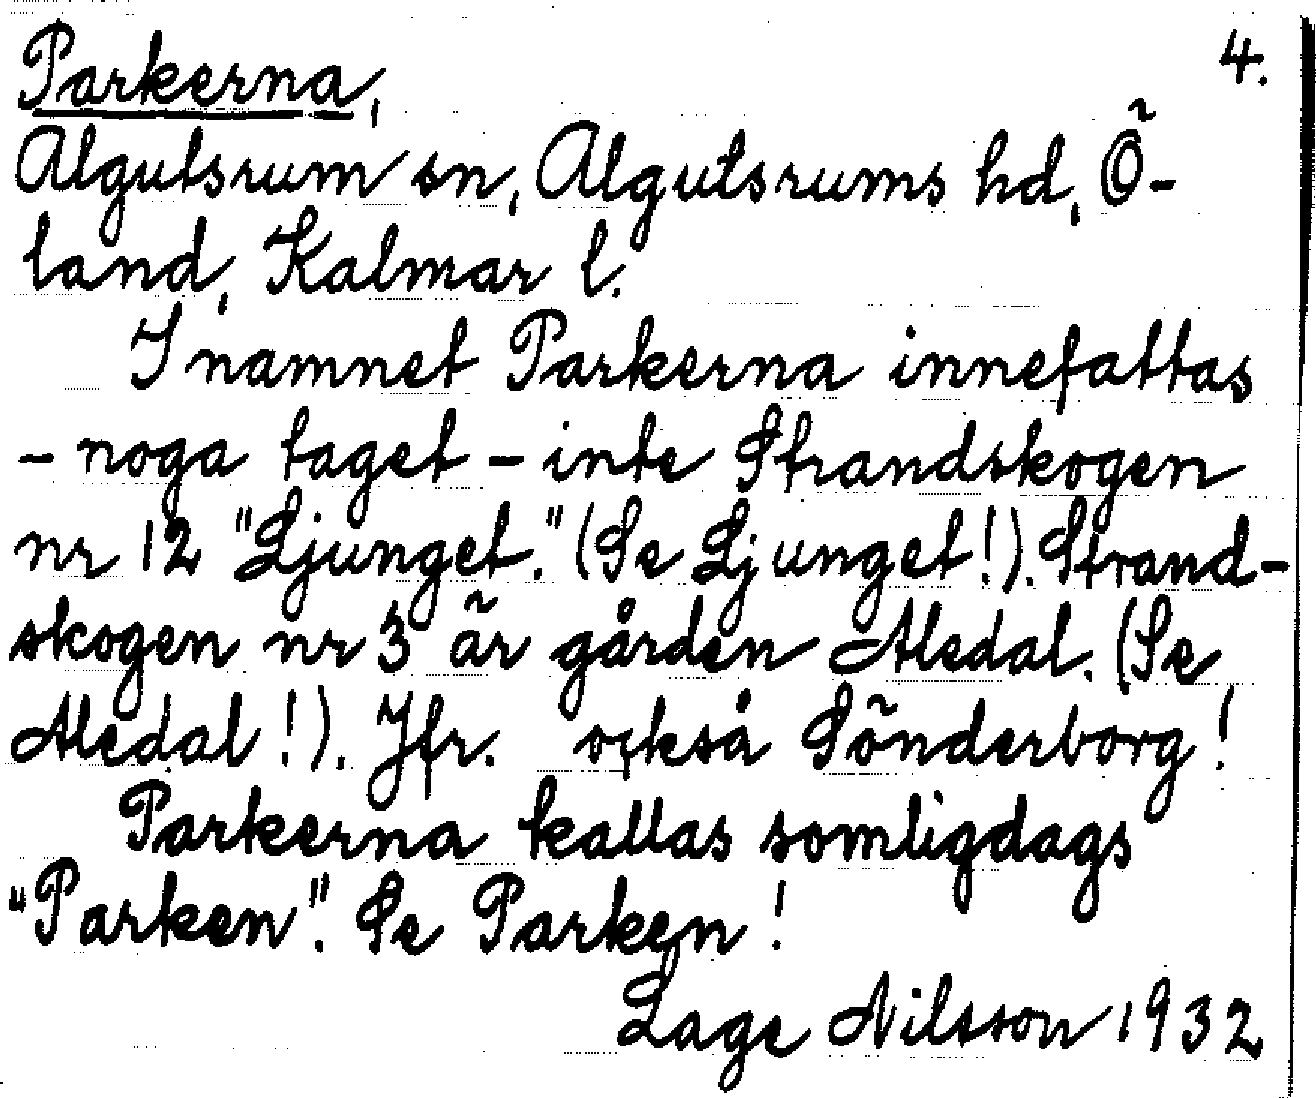 Parkerna, 4.
Algutsrum sn, Algutsrums hd, Ö-
land, Kalmar l.
I namnet Parkerna innefattas
- noga taget - inte Strandskogen
nr 12 "Ljunget." (Se Ljunget!). Strand-
skogen nr 3 är gården Aledal. (Se
Aledal!). Jfr. också Sönderborg!
Parkerna kallas somligdags
"Parken". Se Parken!
Lage Nilsson 1932